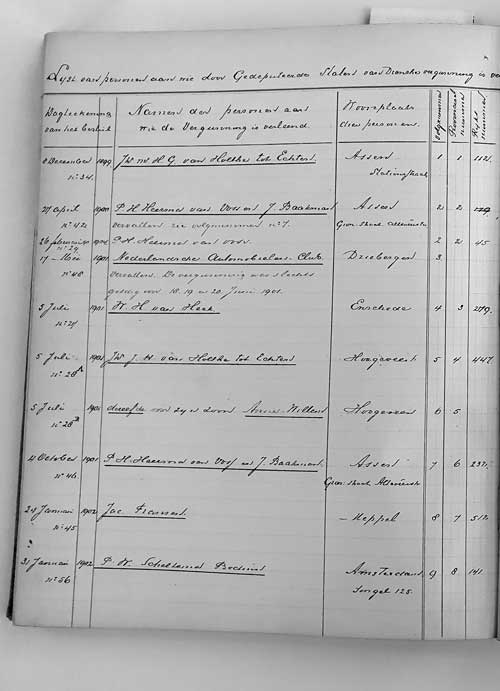 Lyst van personen aan wie door Gedeputeerde Staten van Drenthe vergunning is
Dagteekening van het besluit
Namen der personen aan wie de Vergunning is verleend.
Woonplaats dier personen.
Volgnummer
Provinciaal nummer
8 December 1899 Jhr. Mr. H. G. van Holthe tot Echten. Assen 1 1 1121
n° 34. Stationstraat
27 April P. H. Heerma van Voss en J. Baakman Assen 2 2
n° 42 vervallen zie volgnummer n° 7.
P. H. Heerma van Voss. 2 2 45
n° 29
17 Mei 1901 Nederlandsche Automobielen-Club. Driebergen 3
n° 48 vervallen. De vergunning was slechts
geldig voor 18. 19 en 20 Juni 1901.
3 Juli 1901 W. H. van Heek. Enschede 4 3 279
n° 27
5 Juli 1901 Jhr. J. H. van Holthe tot Echten Hoogeveen 5 4 447
n° 28A
5 Juli 1901 dezelfde voor zijn zoon Anne Willem Hoogeveen 6 5
n° 28B
4 October 1901 P. H. Heerma van Voss en J. Baakman. Assen 7 6 237
n° 46.
24 Januari 1902 Jac. Meppel 8 7 512
n° 45
31 Januari 1902 P. W. Scheltema Beduin Amsterdam 9 8 141
n° 56 Singel 125.